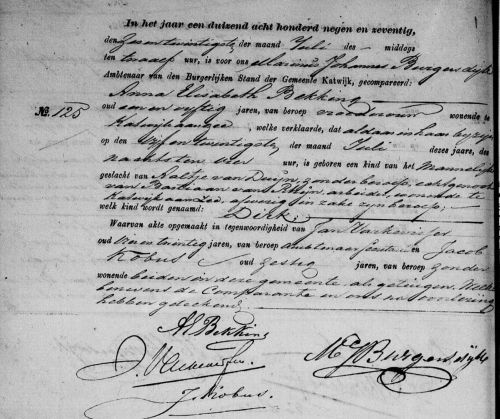 In het jaar een duizend acht honderd negen en zeventig,
den Zesentwintigste der maand Juli des — middags
ten twaalf uur, is voor ons Marinus Johannes Burgersdijk
Ambtenaar van den Burgerlijken Stand der Gemeente Katwijk, gecompareerd:
Anna Elisabeth Bekking
No. 125 oud een en vijftig jaren, van beroep vroedvrouw wonende te
Katwijk aan Zee, welke verklaarde, dat aldaar in haar bijzijn
op den Vijfentwintigste, der maand Juli dezes jaars, des
nachts ten vier uur, is geboren een kind van het Mannelijk
geslacht van Aaltje van Duijn, zonder beroep, echtgenoote
van Bastiaan van Duijn, arbeider, wonende te
Katwijk aan Zee, afwezig in zake zijn beroep;
welk kind wordt genaamd: Dirk;
Waarvan akte opgemaakt in tegenwoordigheid van Jan
oud en twintig jaren, van beroep en Jacob
Kobus oud zestig jaren, van beroep zonder
wonende beiden in deze gemeente als getuigen. Welke
benevens de Comparante en ons na voorlezing
hebben geteekend.
A E Bekking
MJ Burgersdijk
J Kobus.